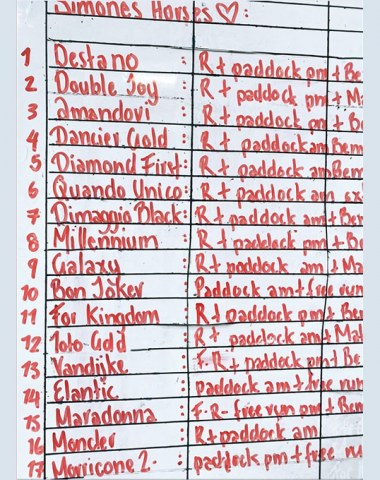 Simones Horses♡:
1 Destano : R + paddock pm + Be
2 Double Joy : R + paddock pm + Ma
3 Amandovi : R + paddock pm + Be
4 Dancier Gold : R + paddock am Bem
5 Diamond First : R + paddock am Bem
6 Quando Unico : R + paddock am
7 Dimaggio Black : R + paddock am + Ber
8 Millennium : R + paddock pm + B
9 Galaxy : R + paddock am + Ma
10 Bon Joker : Paddock am + free run
11 For Kingdom : R + paddock pm + Ber
12 Toto : R + paddock am + Mal
13 Vandijke : F.R + paddock pm + Be
14 Elantic : paddock am + free run
15 Maradonna : F.R - free run pm + Bem
16 Moncler : R + paddock am
17 Morricone 2 : paddock pm + free ru